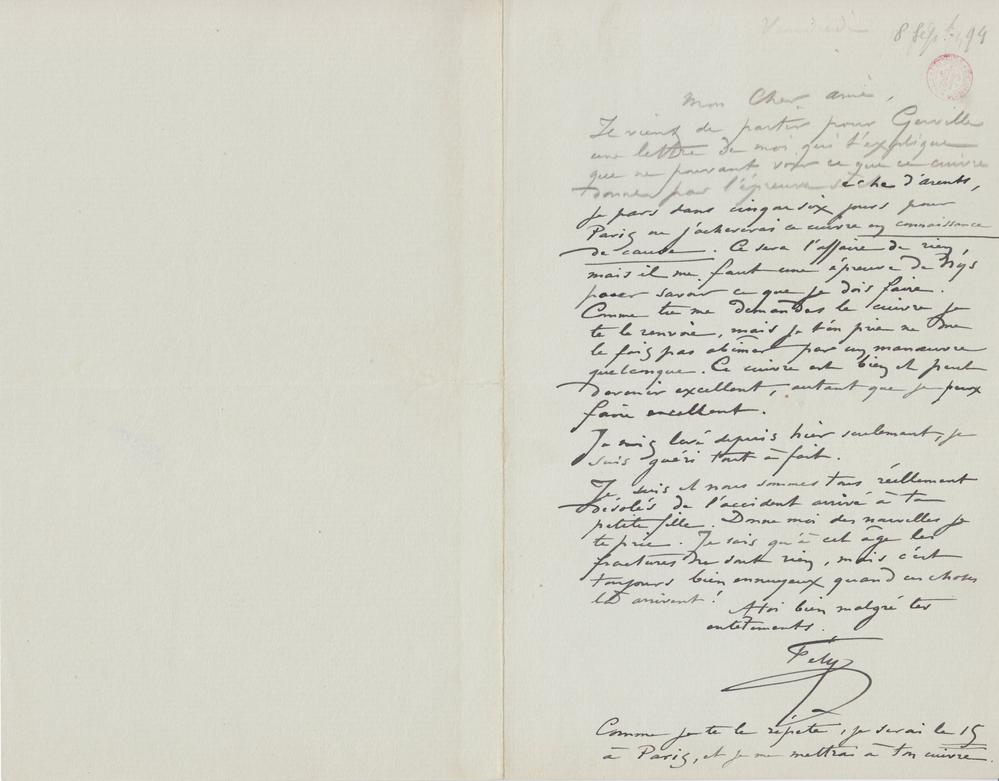 Vendredi 8 Sept. 94
Mon Cher ami,
Il vient de partir pour
une lettre de moi qui t'explique
que ne pouvant voir ce que ce cuivre
donne par l'épreuve
je pars dans cinq ou six jours pour
Paris où j'acheverai ce cuivre en connaissance
de cause. Ce sera l'affaire de rien,
mais il me faut une épreuve de Nys
pour savoir ce que je dois faire.
Comme tu me demandes le cuivre je
te le renvoie, mais je t'en prie ne me
le fais pas abîmer par un manœuvre
quelconque. Ce cuivre est bien et peut
devenir excellent, autant que je peux
faire excellent.
Je suis levé depuis hier seulement, je
suis guéri tout à fait.
Je suis et nous sommes tous réellement
désolés de l'accident arrivé à ta
petite fille. Donne moi des nouvelles je
te prie. Je sais qu'à cet âge les
fractures ne sont rien, mais c'est
toujours bien ennuyeux quand ces choses
là arrivent!
A toi bien malgré tes
entêtements.
Fély
Comme je te le répète, je serai le 15
à Paris, et je me mettrai à ton cuivre.